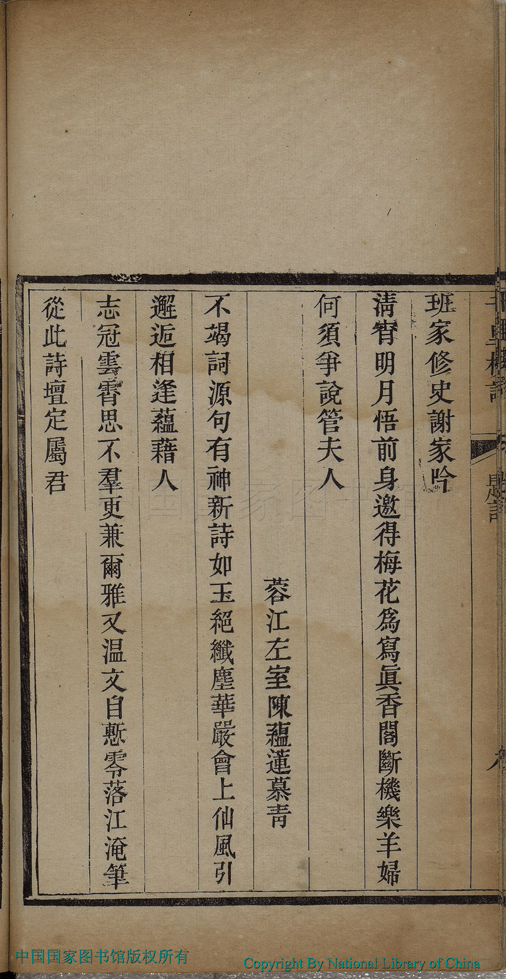 班家修史謝家吟
清宵明月悟前身邀得梅花爲寫眞香閣斷機樂羊婦
何須爭說管夫人
蓉江左室陳蘊蓮慕青
不竭詞源句有神新詩如玉絕纖塵華嚴會上仙風引
邂逅相逢蘊藉人
志冠雲霄思不羣更兼爾雅又温文自慙零落江淹筆
從此詩壇定屬君
中国国家图书馆版权所有
Copyright By National Library of China